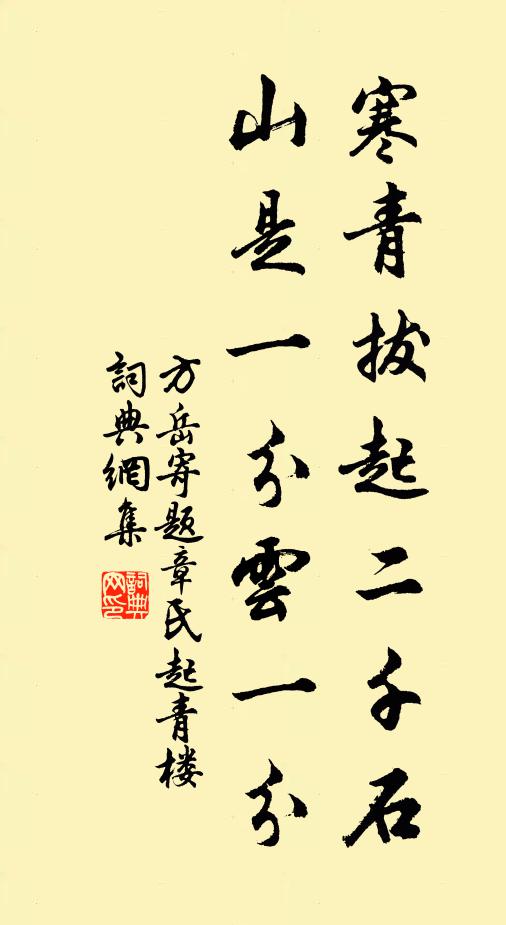 寒青拔起二千石
山是一分雲一分
方岳寄题章氏起青楼
詞典網集
詞典网印